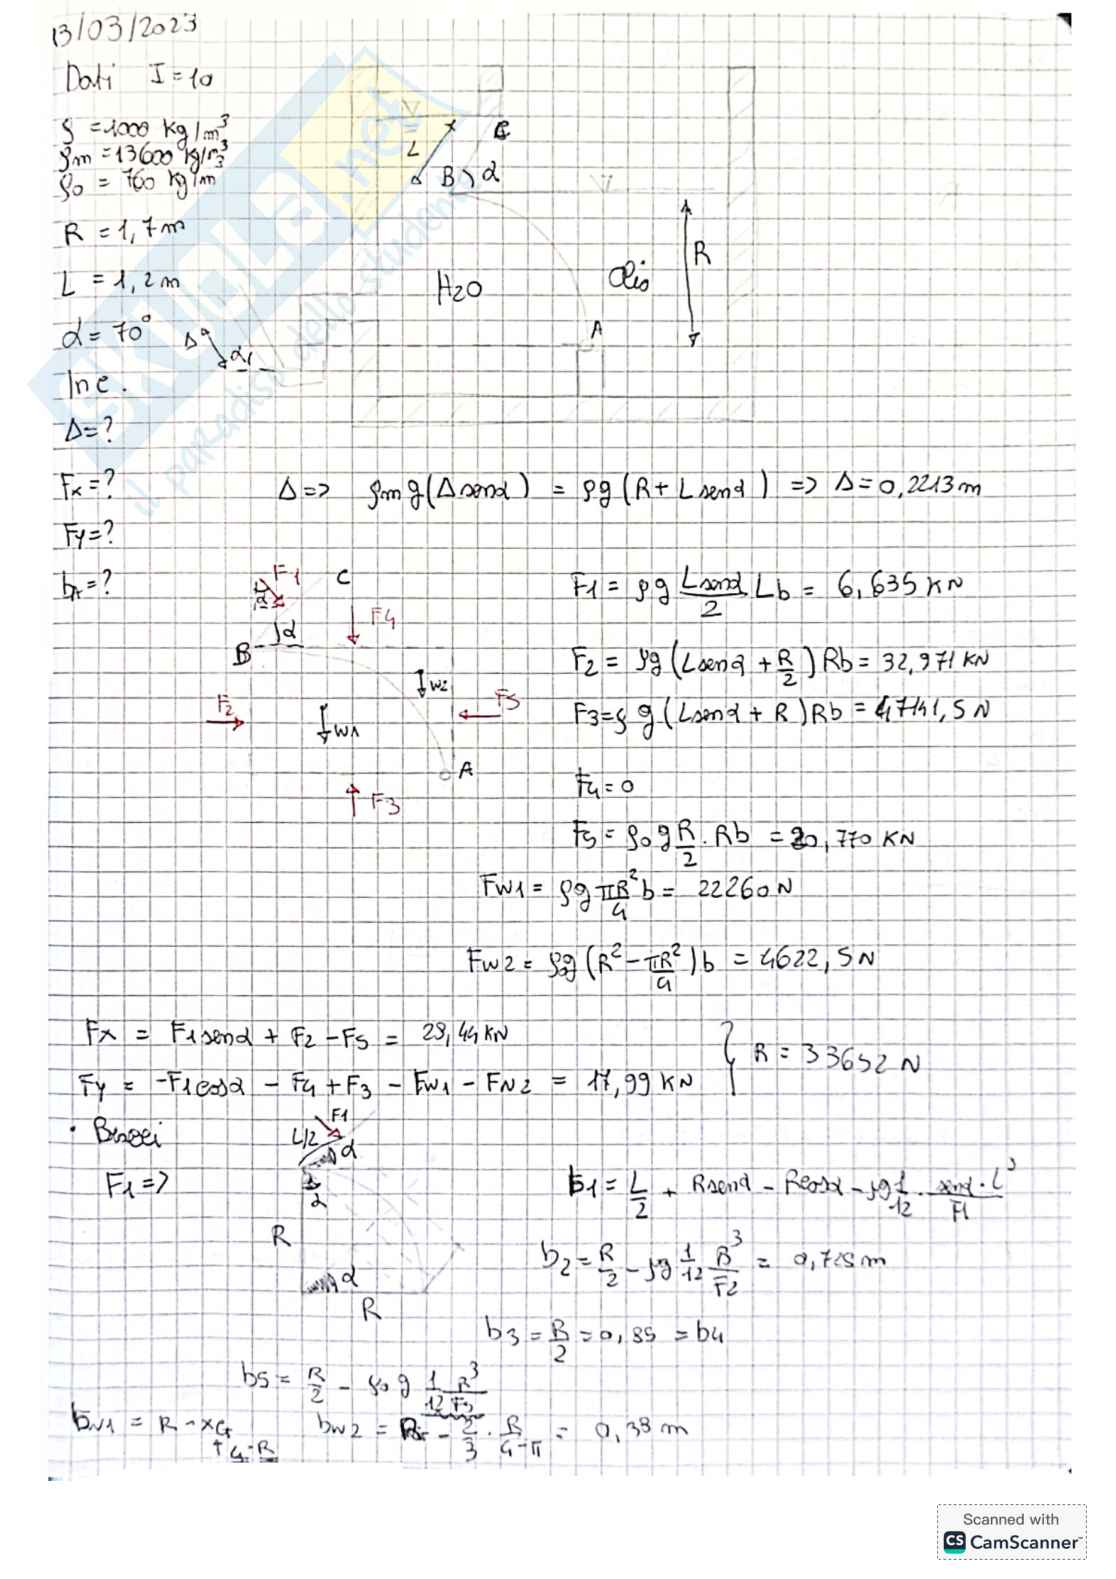 13/03/2023
Dati I=10
ρ = 1000 kg/m³
ρm = 13600 kg/m³
ρo = 760 kg/m
R = 1,7 m
L = 1,2 m
α = 70°
Δ α
Inc.
Δ=?
Fx=?
Fy=?
br=?
L
B α
C
H2O
Olio
R
A
SKUOLA.net
il paradiso dello studente
Δ => ρm g(Δ senα) = ρg(R+L senα) => Δ=0,2213 m
F1
C
α
F4
B
W2
F2
F5
W1
A
F3
F1 = ρg Lsenα/2 Lb = 6,635 KN
F2 = ρg (Lsenα + R/2) Rb = 32,971 KN
F3 = ρg (Lsenα + R) Rb = 47141,5 N
F4 = 0
F5 = ρo g R/2 · Rb = 20,770 KN
FW1 = ρg πR²/4 b = 22260 N
FW2 = ρg (R² - πR²/4) b = 4622,5 N
Fx = F1 senα + F2 - F5 = 28,44 KN
Fy = -F1 cosα - F4 + F3 - FW1 - FW2 = 17,99 KN
} R = 33652 N
• Bracci
F1 =>
F1
L/2
α
α
R
α
R
b1 = L/2 + R senα - R cosα - ρg 1/12 · senα · L³/F1
b2 = R/2 - ρg 1/12 R³/F2 = 0,725 m
b3 = R/2 = 0,85 = b4
b5 = R/2 - ρo g 1/12 R³/F5
bW1 = R - xG
bW2 = R - 2/3 · R/4-π = 0,38 m
↑ 4-R
Scanned with
CS CamScanner